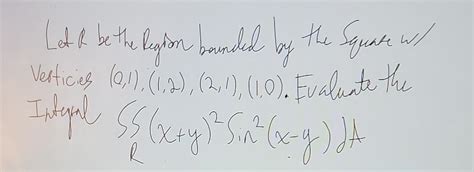 Let R be the Region bounded by the Square w/
Verticies (0,1), (1,2), (2,1), (1,0). Evaluate the
Integral ∫∫_R (x+y)² Sin² (x-y) dA